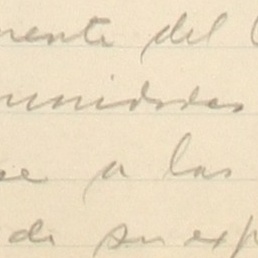 mente del
munidades
se a las
de su exp